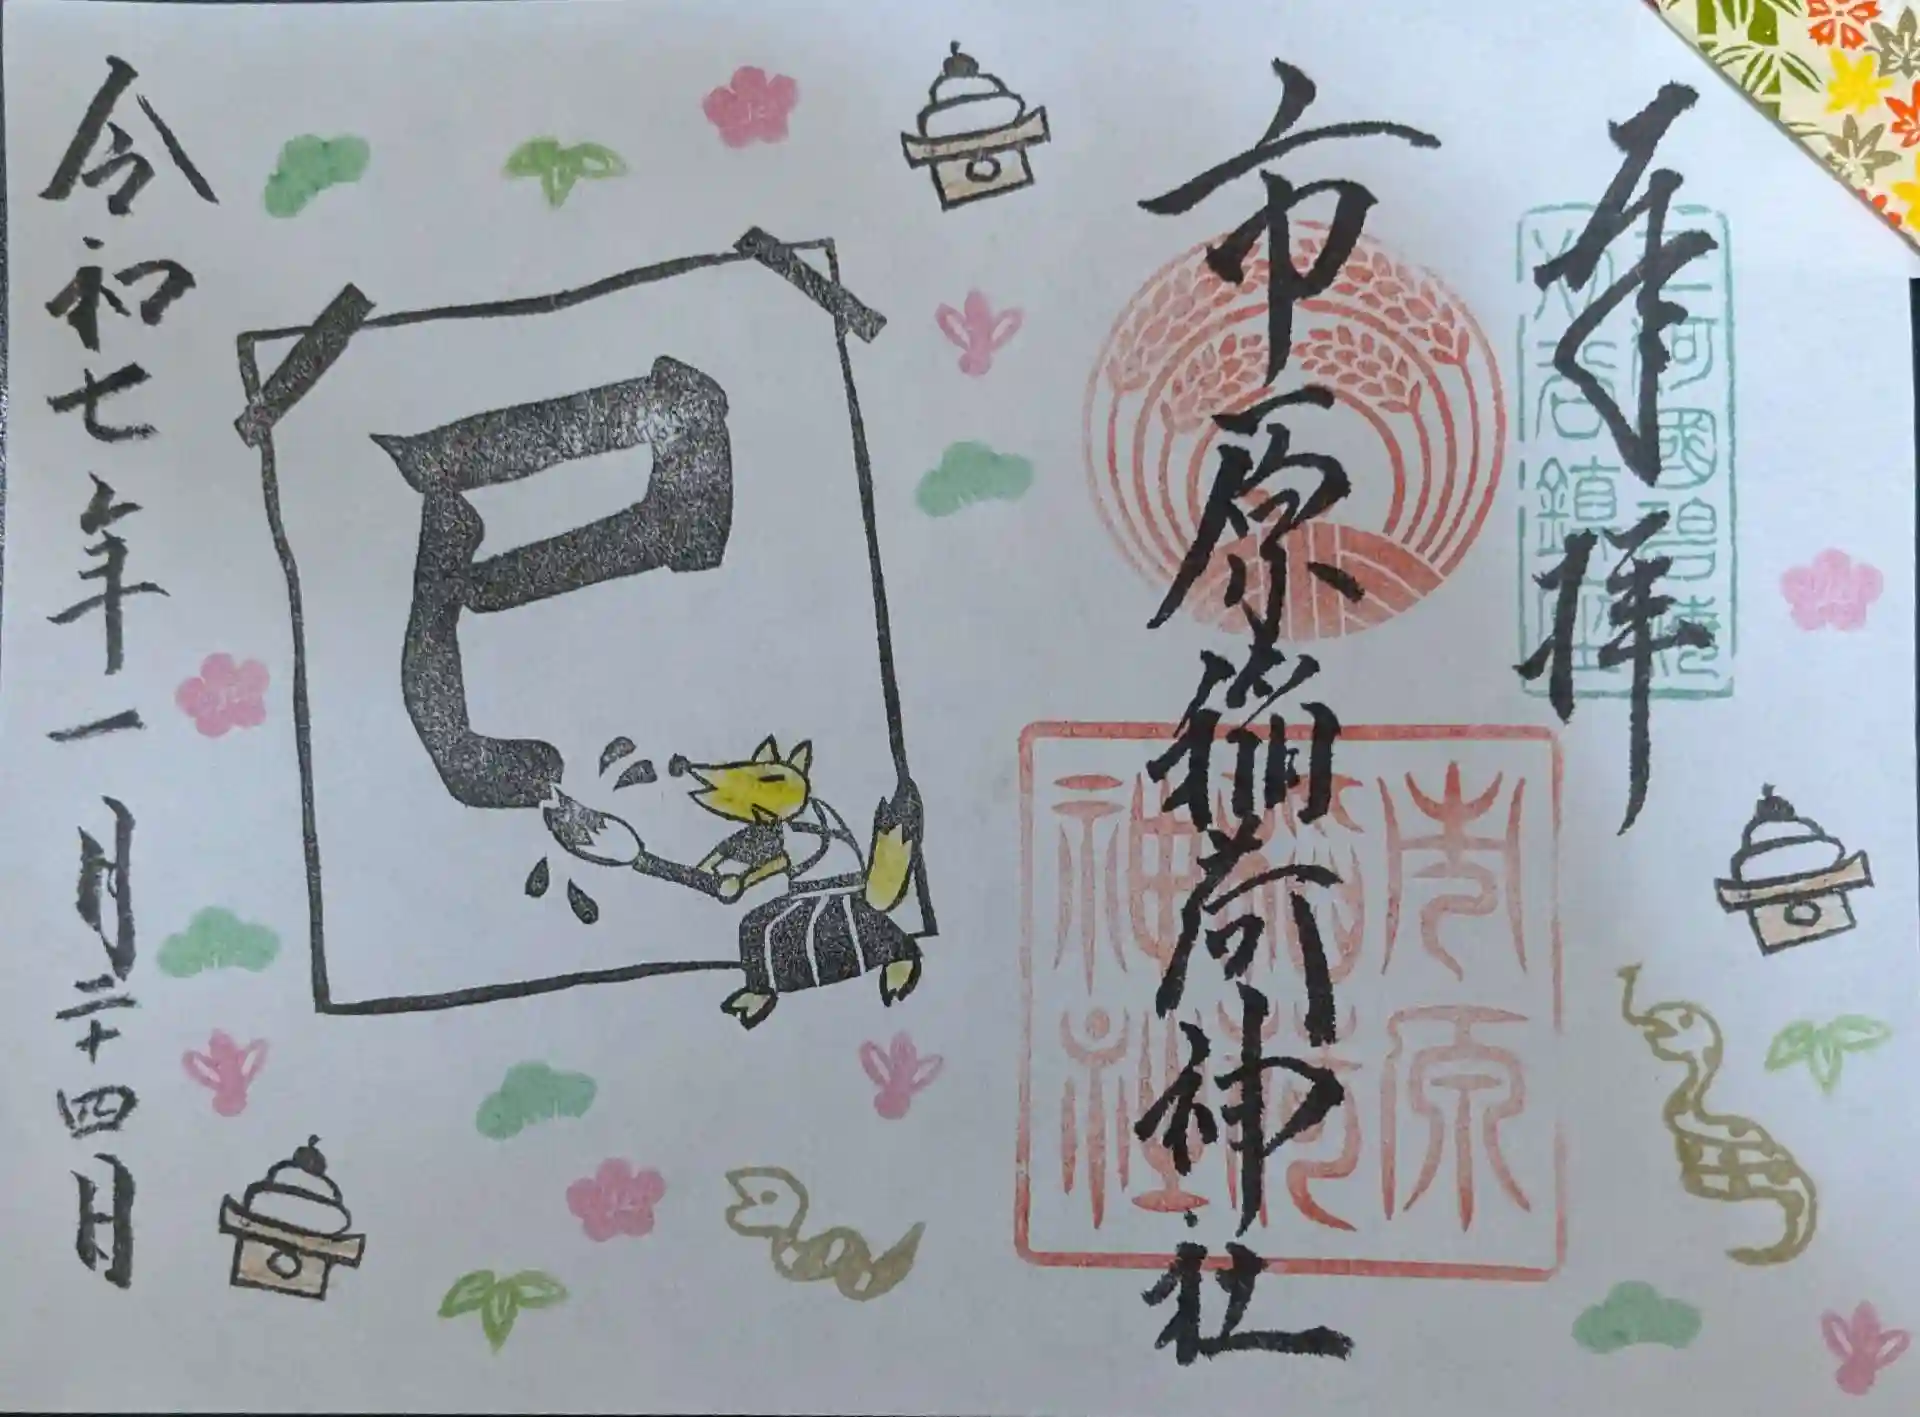 奉拝
三河國碧海
刈谷鎮座
市原稲荷神社
市原
稲荷
神社
巳
令和七年一月二十四日